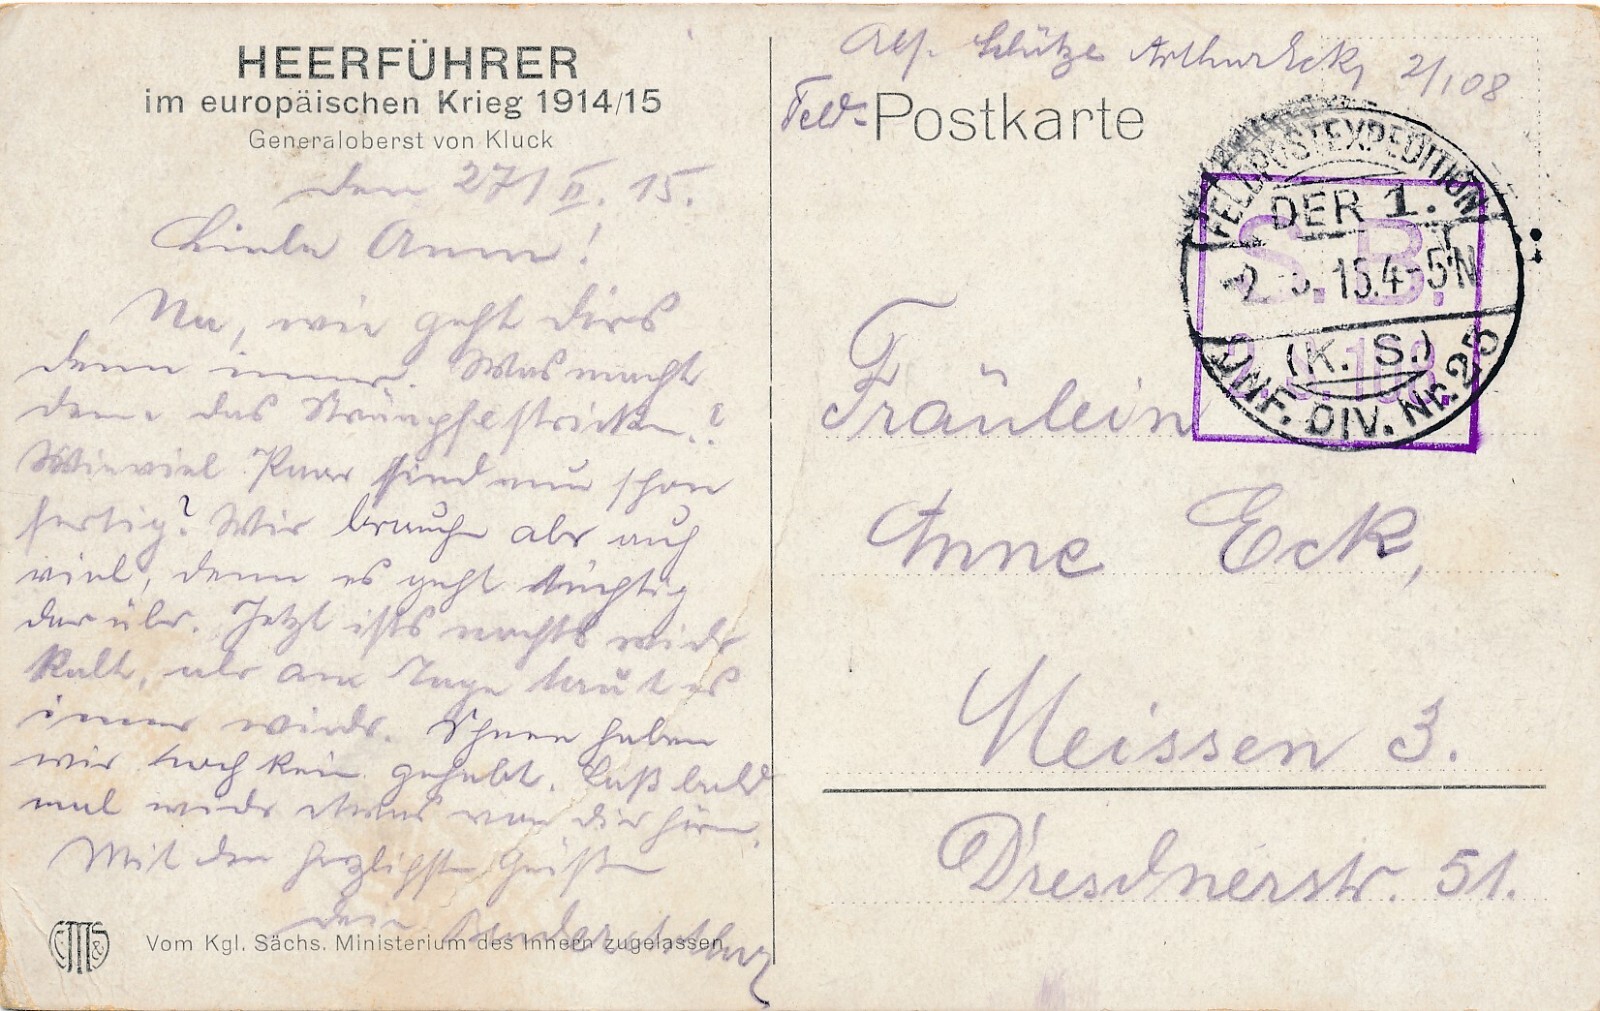 HEERFÜHRER
im europäischen Krieg 1914/15
Generaloberst von Kluck
den 27/II. 15.
Liebe Anne!
Na, wie geht dirs
denn immer. Was macht
denn das Strümpfestricken?
Wieviel Paar sind nun schon
fertig? Wir brauchen aber auch
viel, denn es geht tüchtig
darüber. Jetzt ists nachts wieder
kalt, aber am Tage taut es
immer wieder. Schnee haben
wir noch kein gehabt. Laß bald
mal wieder etwas von dir hören.
Mit den herzlichsten Grüßen
dein
Vom Kgl. Sächs. Ministerium des Innern zugelassen
Abs. Schütze Arthur Eck, 2/108
Feld-Postkarte
FELDPOSTEXPEDITION
DER 1.
2. 3. 15. 4-5 N
(K. S.)
INF. DIV. Nr. 25
S. B.
108.
Fräulein
Anne Eck,
Meissen 3.
Dresdnerstr. 51.